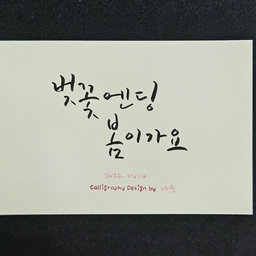 벚꽃엔딩
봄이가요
Calligraphy Design by